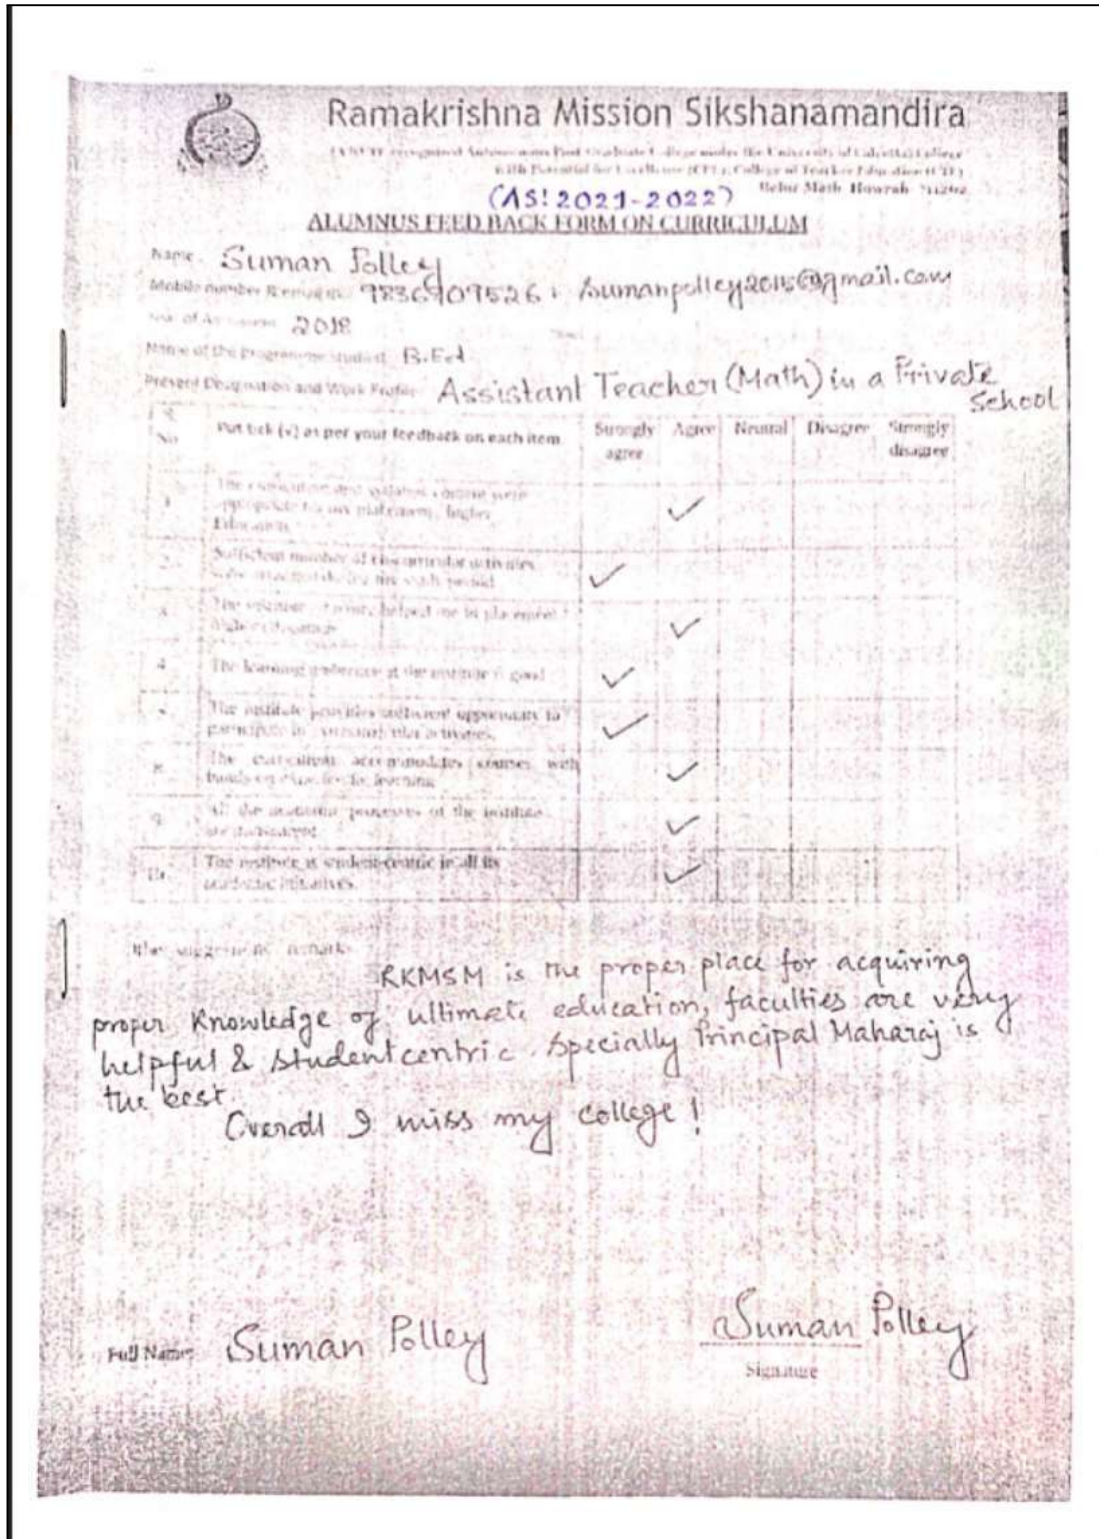 Ramakrishna Mission Sikshanamandira
(A NCTE recognized Autonomous Post Graduate College under the University of Calcutta) College
with Potential for Excellence (CPE), College of Teacher Education (CTE)
Belur Math Howrah
(AS: 2021-2022)
ALUMNUS FEED BACK FORM ON CURRICULUM
Name Suman Polley
Mobile number 9836909526, sumanpolley2015@gmail.com
2018
Name of the programme studied B.Ed
Present Designation and Work Profile Assistant Teacher (Math) in a Private
School
Sl. No Put tick (✓) as per your feedback on each item. Strongly agree Agree Neutral Disagree Strongly disagree
1 The curriculum and syllabus content were
appropriate for my placement / higher
Education ✓
2 Sufficient number of co-curricular activities
✓
helped me in placement /
higher education ✓
4 The learning ambience at the institute is good ✓
The institute provides sufficient opportunity to
participate in activities. ✓
The curriculum accommodates courses with
hands on learning ✓
9 All the processes of the institute
are ✓
10. The institute is student-centric in all its
academic initiatives. ✓
RKMSM is the proper place for acquiring
proper knowledge of ultimate education, faculties are very
helpful & studentcentric. Specially Principal Maharaj is
the best.
Overall I miss my college!
Full Name: Suman Polley
Suman Polley
Signature